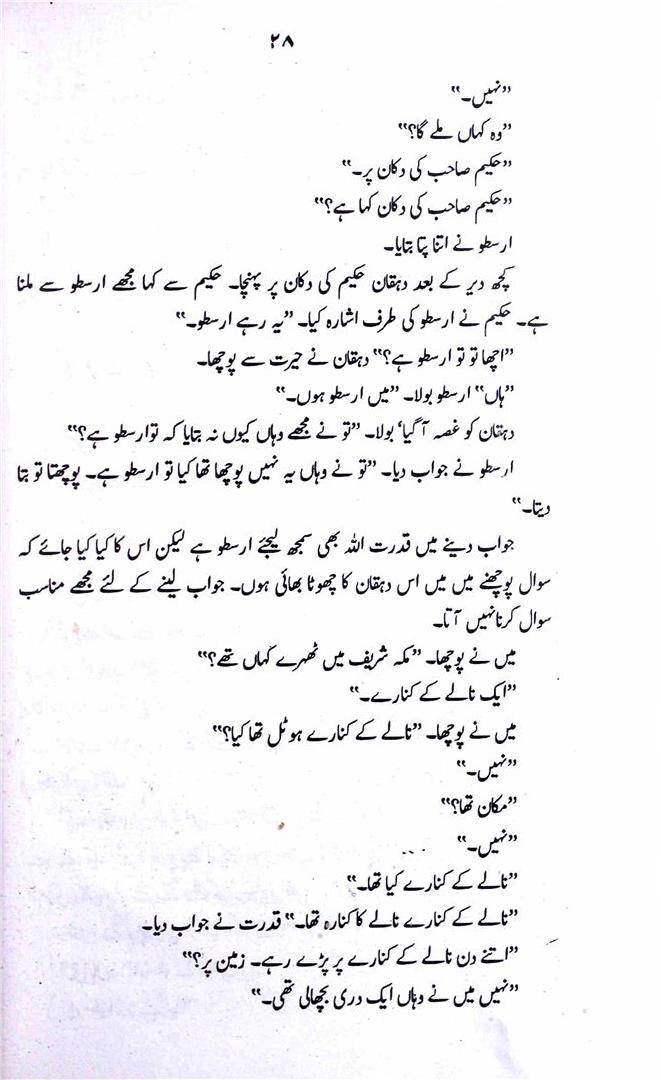 ۲۸
”نہیں۔“
”وہ کہاں ملے گا؟“
”حکیم صاحب کی دکان پر۔“
”حکیم صاحب کی دکان کہا ہے؟“
ارسطو نے اتنا پتا بتایا۔
کچھ دیر کے بعد دہقان حکیم کی دکان پر پہنچا۔ حکیم سے کہا مجھے ارسطو سے ملنا
ہے۔ حکیم نے ارسطو کی طرف اشارہ کیا۔ ”یہ رہے ارسطو۔“
”اچھا تو تو ارسطو ہے؟“ دہقان نے حیرت سے پوچھا۔
”ہاں“ ارسطو بولا۔ ”میں ارسطو ہوں۔“
دہقان کو غصہ آ گیا‘ بولا۔ ”تو نے مجھے وہاں کیوں نہ بتایا کہ تو ارسطو ہے؟“
ارسطو نے جواب دیا۔ ”تو نے وہاں یہ نہیں پوچھا تھا کیا تو ارسطو ہے۔ پوچھتا تو بتا
دیتا۔“
جواب دینے میں قدرت اللہ بھی سمجھ لیجئے ارسطو ہے لیکن اس کا کیا کیا جائے کہ
سوال پوچھنے میں میں اس دہقان کا چھوٹا بھائی ہوں۔ جواب لینے کے لئے مجھے مناسب
سوال کرنا نہیں آتا۔
میں نے پوچھا۔ ”مکہ شریف میں ٹھہرے کہاں تھے؟“
”ایک نالے کے کنارے۔“
میں نے پوچھا۔ ”نالے کے کنارے ہوٹل تھا کیا؟“
”نہیں۔“
”مکان تھا؟“
”نہیں۔“
”نالے کے کنارے کیا تھا۔“
”نالے کے کنارے نالے کا کنارہ تھا۔“ قدرت نے جواب دیا۔
”اتنے دن نالے کے کنارے پر پڑے رہے۔ زمین پر؟“
”نہیں میں نے وہاں ایک دری بچھالی تھی۔“